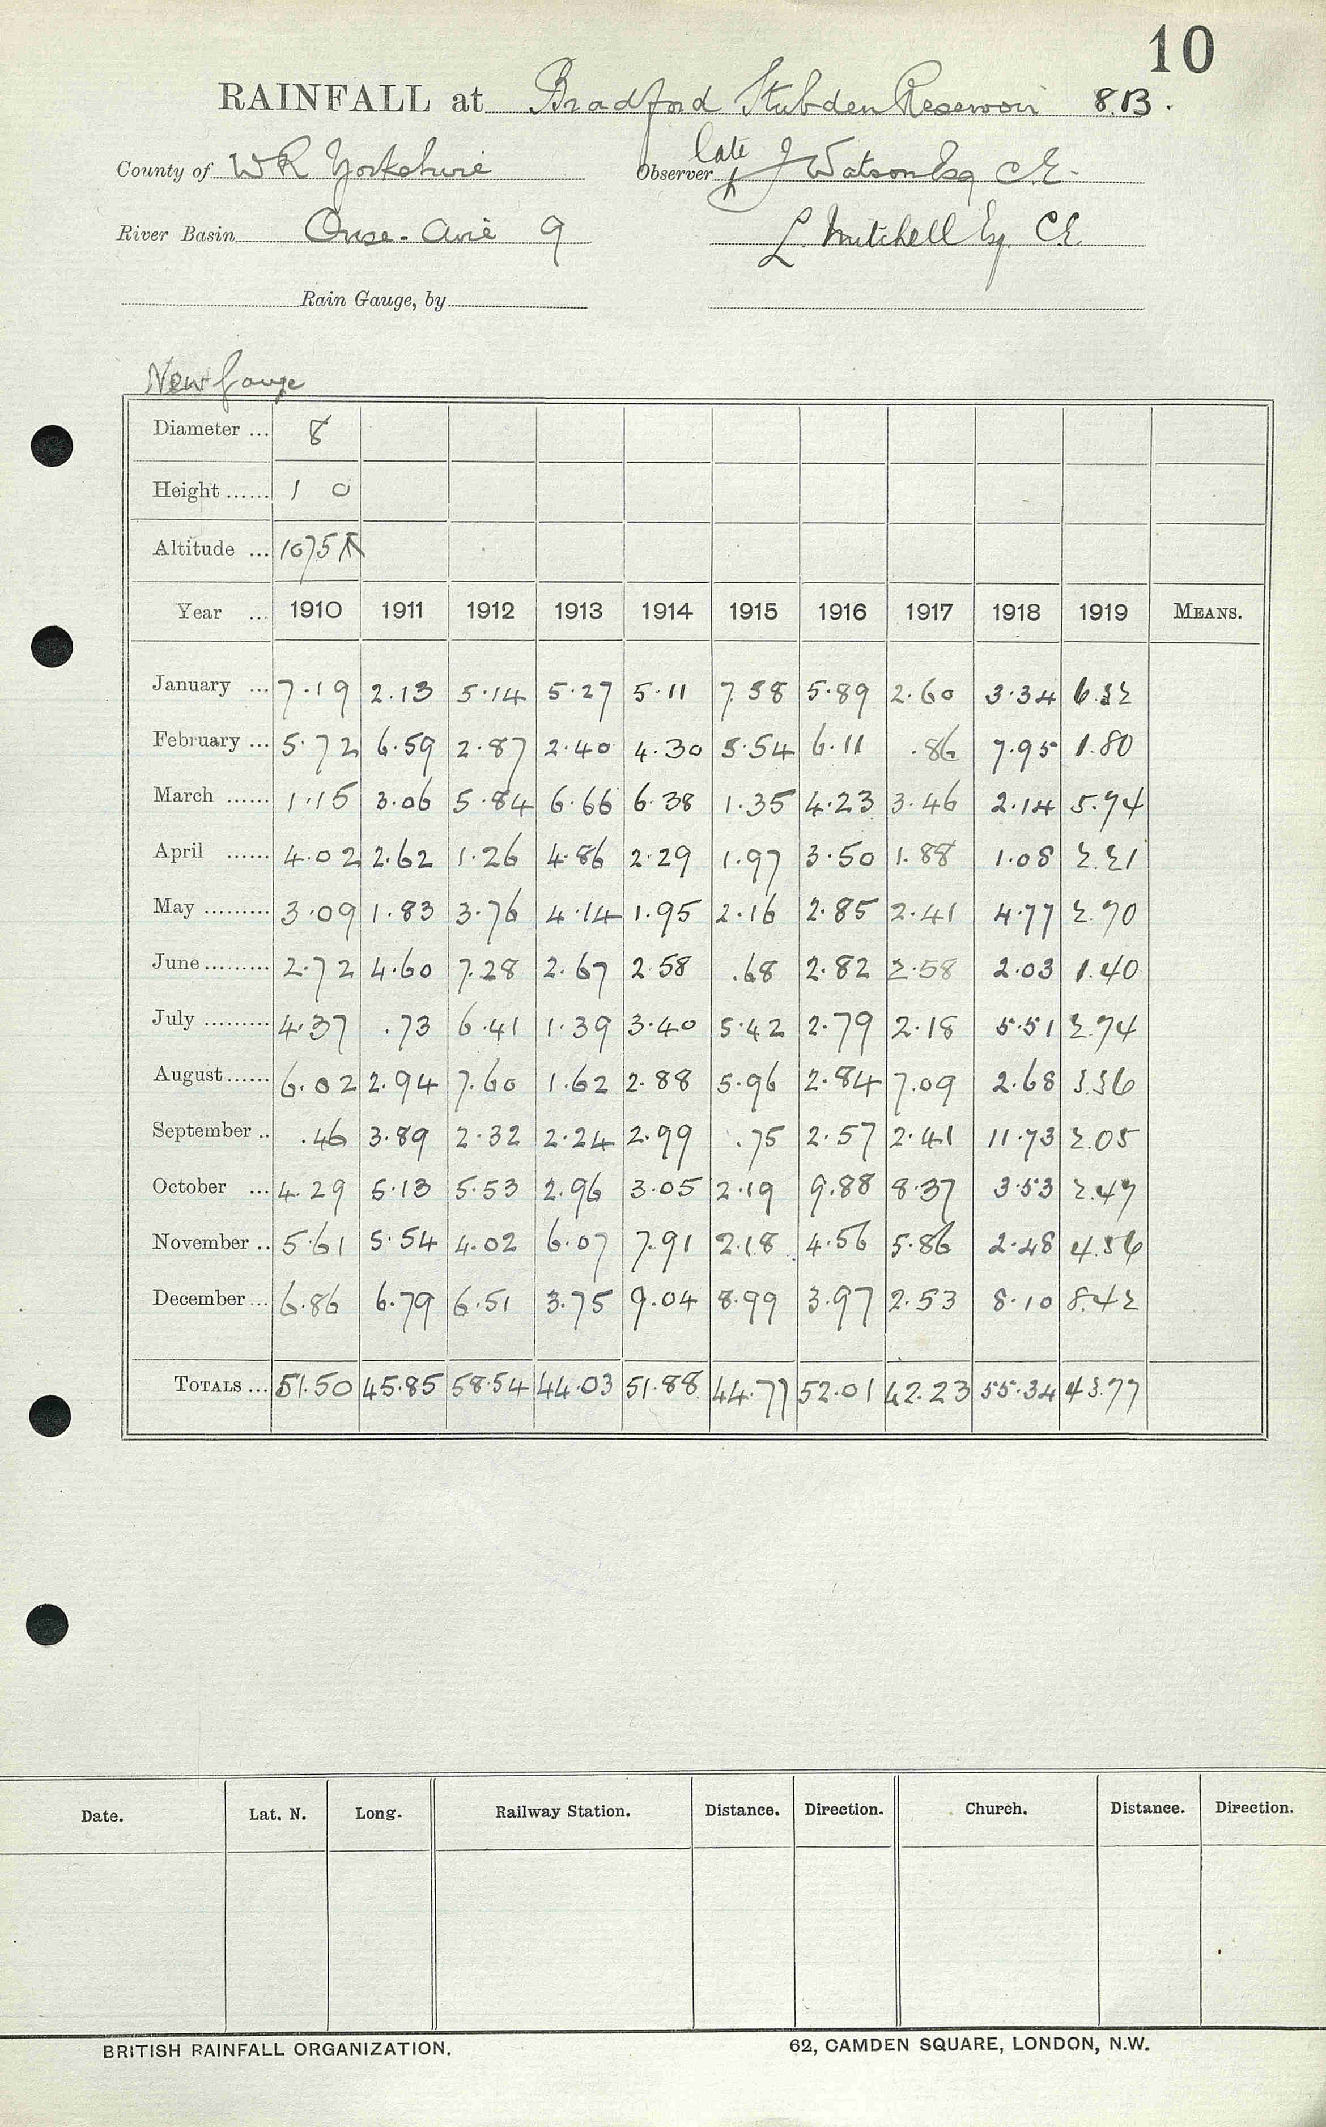 10
RAINFALL at Bradford Stubden Reservoir 8.B.
County of W R Yorkshire Observer late J Watson Esq C.E.
River Basin Ouse - Aire 9 L. Mitchell Esq. C.E.
Rain Gauge, by
New Gauge
Diameter ... 8
Height ...... 1 0
Altitude ... 1075
Year ... 1910 1911 1912 1913 1914 1915 1916 1917 1918 1919 MEANS.
January ... 7.19 2.13 5.14 5.27 5.11 7.58 5.89 2.60 3.34 6.32
February ... 5.72 6.59 2.87 2.40 4.30 5.54 6.11 .86 7.95 1.80
March ...... 1.15 3.06 5.84 6.66 6.38 1.35 4.23 3.46 2.14 5.74
April ...... 4.02 2.62 1.26 4.86 2.29 1.97 3.50 1.88 1.08 2.21
May ......... 3.09 1.83 3.76 4.14 1.95 2.16 2.85 2.41 4.77 2.70
June ......... 2.72 4.60 7.28 2.67 2.58 .68 2.82 2.58 2.03 1.40
July ......... 4.37 .73 6.41 1.39 3.40 5.42 2.79 2.18 5.51 2.74
August ...... 6.02 2.94 7.60 1.62 2.88 5.96 2.84 7.09 2.68 3.36
September .. .46 3.89 2.32 2.24 2.99 .75 2.57 2.41 11.73 2.05
October ... 4.29 5.13 5.53 2.96 3.05 2.19 9.88 8.37 3.53 2.47
November .. 5.61 5.54 4.02 6.07 7.91 2.18 4.56 5.86 2.48 4.56
December ... 6.86 6.79 6.51 3.75 9.04 8.99 3.97 2.53 8.10 8.42
TOTALS ... 51.50 45.85 58.54 44.03 51.88 44.77 52.01 42.23 55.34 43.77
Date. Lat. N. Long. Railway Station. Distance. Direction. Church. Distance. Direction.
BRITISH RAINFALL ORGANIZATION. 62, CAMDEN SQUARE, LONDON, N.W.